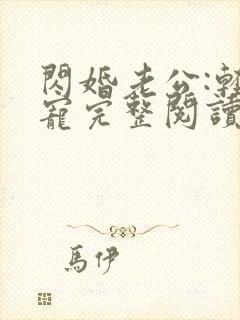 閃婚老公:輕
寵完整閱讀
馬伊